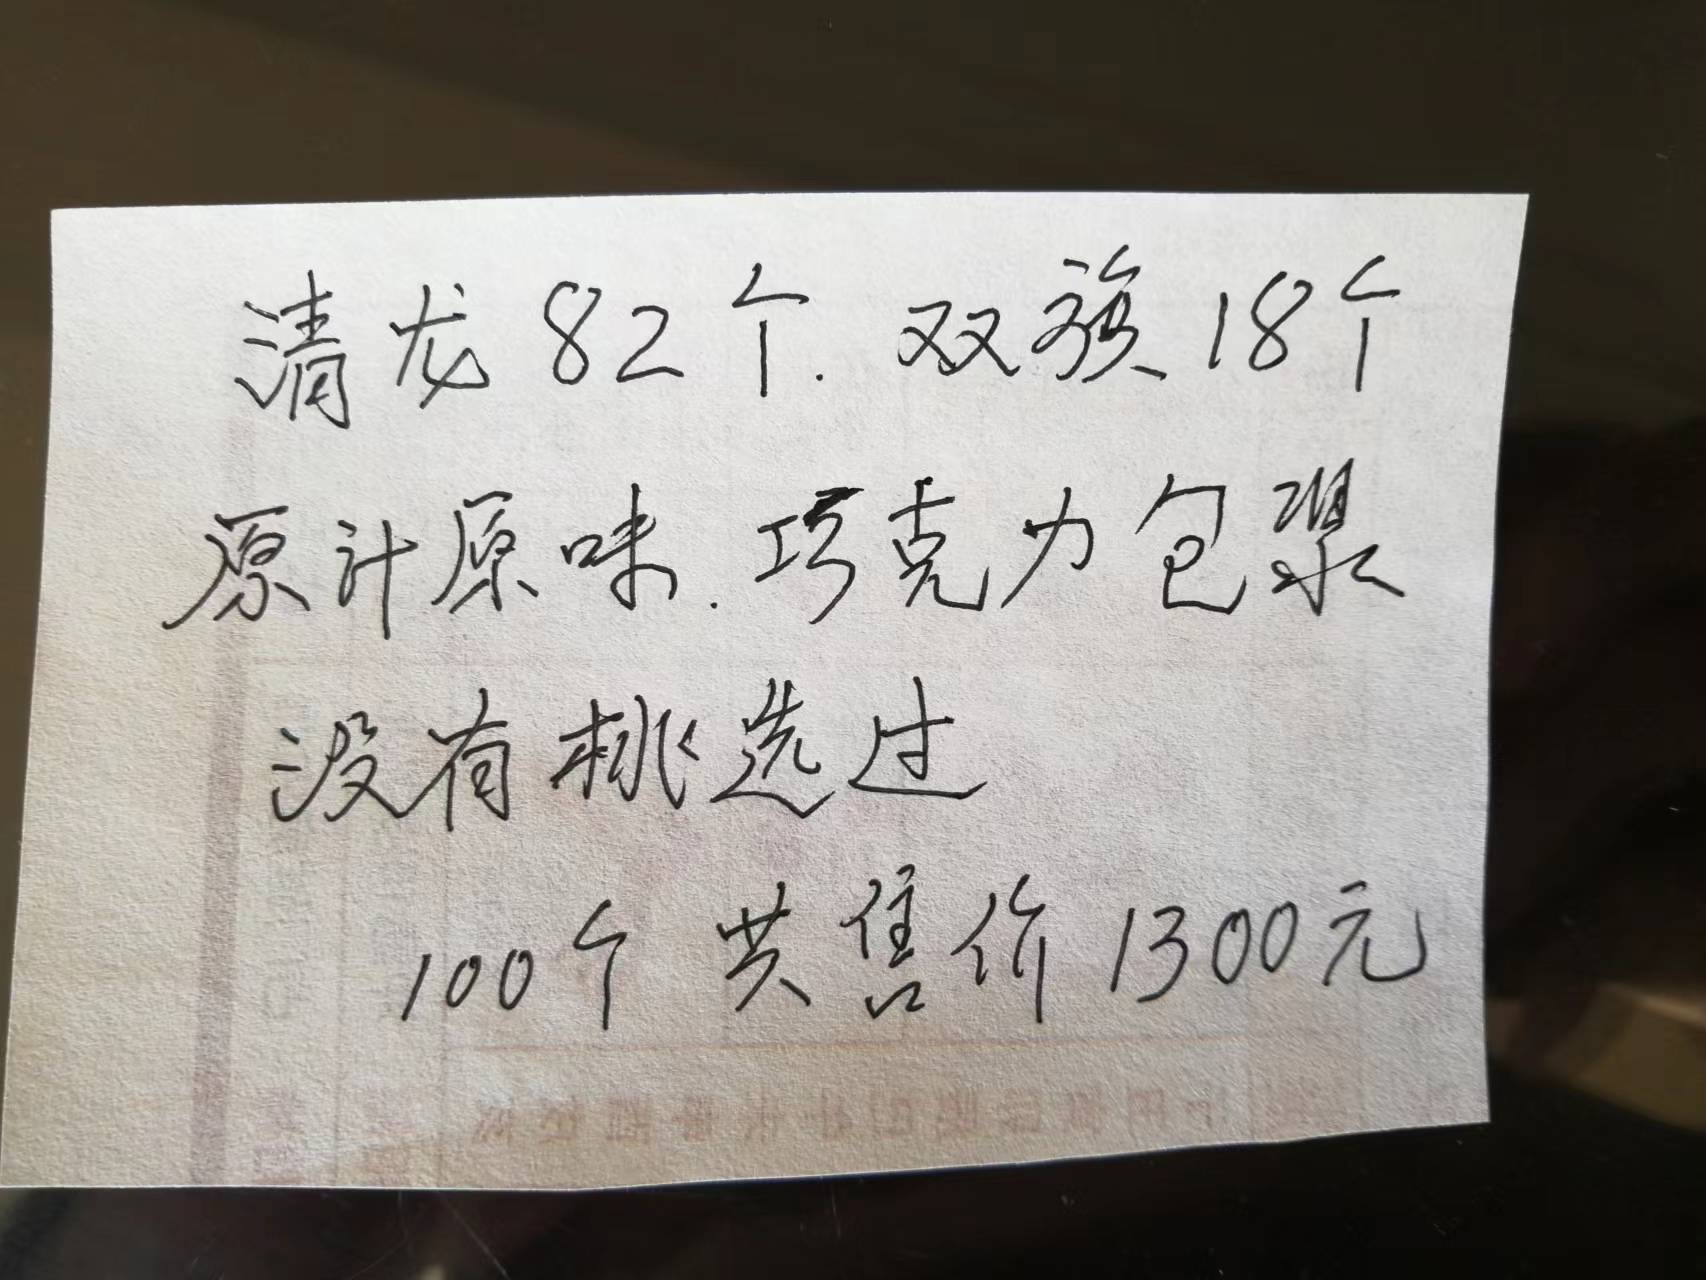 清龙82个.双旗18个
原汁原味.巧克力包浆
没有挑选过
100个 共售价1300元